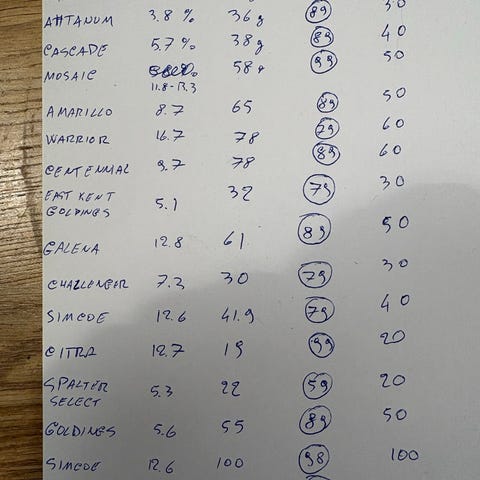 AHTANUM 3.8 % 36 g 89 30
CASCADE 5.7 % 38 g 89 40
MOSAIC 58 g 99 50
11.8-13.3
AMARILLO 8.7 65 89 50
WARRIOR 16.7 78 79 60
CENTENNIAL 9.7 78 89 60
EAST KENT
GOLDINGS 5.1 32 79 30
GALENA 12.8 61 89 50
CHALLENGER 7.2 30 79 30
SIMCOE 12.6 41.9 79 40
CITRA 12.7 19 99 20
SPALTER
SELECT 5.3 22 59 20
GOLDINGS 5.6 55 89 50
SIMCOE 12.6 100 98 100